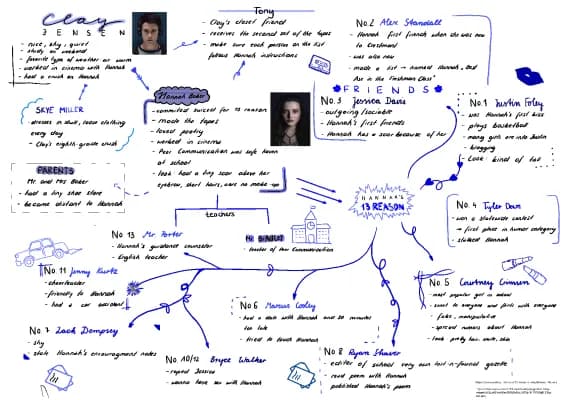 Clay
JENSEN
- nice, shy, quiet
- study on weekend
- favorite type of weather is warm
- worked in cinema with Hannah
- had a crush on Hannah
Tony
- Clay's closest friend
- receives the second set of the tapes
- make sure each person on the list
follows Hannah instructions
No.2 Alex Standall
- Hannah first friend when she was new
to Crestmont
- was also new
- made a list → named Hannah „Best
Ass in the Freshman Class"
SKYE MILLER
- dresses in dull, loose clothing
every day
- Clay's eighth-grade crush
Hannah Baker
- committed suicide for 13 reason
- made the tapes
- loved poetry
- worked in cinema
- Peer Communication was safe haven
at school
- look: had a tiny scar above her
eyebrow, short hairs, wore no make-up
FRIENDS
No.3 Jessica Davis
- outgoing/sociable
- Hannah's first friends
- Hannah has a scar because of her
No.1 Justin Foley
- was Hannah's first kiss
- plays basketball
- many girls are into Justin
- bragging
- Look: kind of tall
PARENTS
Mr. and Mrs Baker
- had a tiny shoe store
- became distant to Hannah
HANNAH'S
13 REASON
teachers
No.4 Tyler Down
- won a statewide contest
→ first place in human category
- stalked Hannah
No.13 Mr. Porter
- Hannah's guidance counselor
- English teacher
- teacher of Peer Communication
No.11 Jenny Kurtz
- cheerleader
- friendly to Hannah
- had a car accident
No.5 Courtney Crimsen
- most popular girl in school
- sweet to everyone and flirts with everyone
- fake, manipulative
- spread rumors about Hannah
- look: pretty hair, smile, skin
No.6 Marcus Cooley
- had a date with Hannah and 30 minutes
too late
- tried to touch Hannah
No.7 Zach Dempsey
- shy
- stole Hannah's encouragment notes
No.10/12 Bryce Walker
- raped Jessica
- wanna have sex with Hannah
No.8 Ryan Shaver
- editor of school very own lost-n-found gazette
- read poem with Hannah
- published Hannah's poem